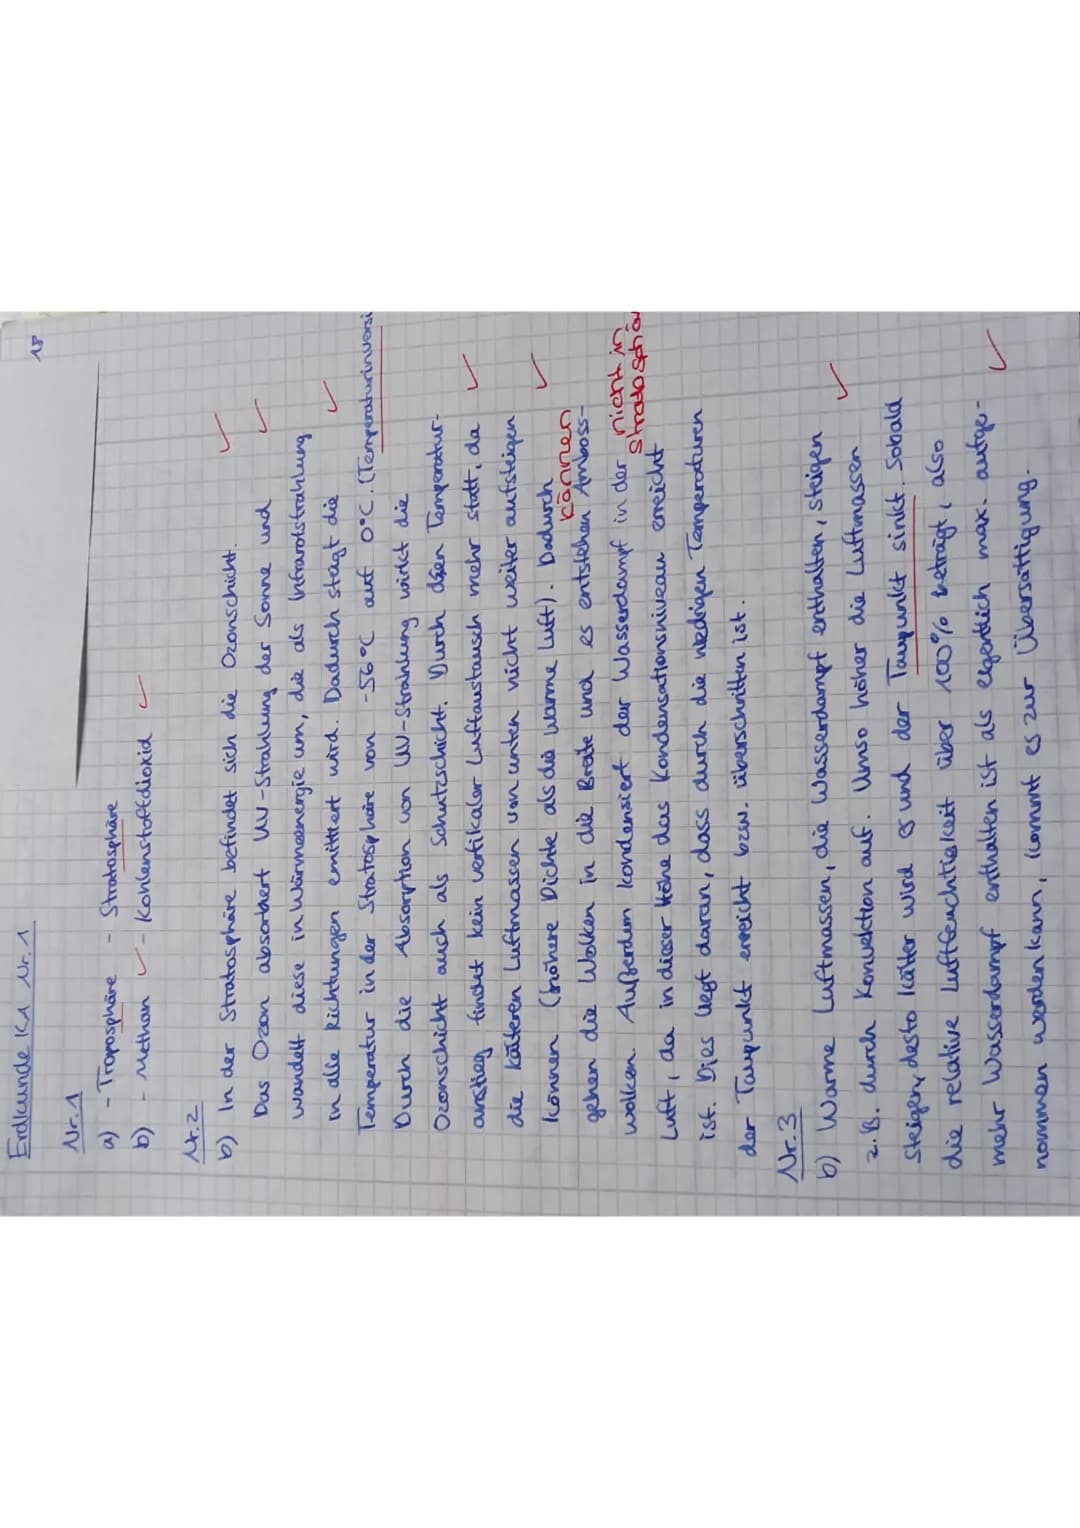 18
Erdkunde KA Nr. 1
Nr. 1
a) - Troposphäre - Stratosphäre
b) - Methan - Kohlenstoffdioxid
Nr. 2
b) In der Stratosphäre befindet sich die Ozonschicht.
Das Ozon absorbiert UV-Strahlung der Sonne und
wandelt diese in Wärmeenergie um, die als Infrarotstrahlung
in alle Richtungen emittiert wird. Dadurch steigt die
Temperatur in der Stratosphäre von -56°C auf 0°C. (Temperaturinversi
Durch die Absorption von UV-Strahlung wirkt die
Ozonschicht auch als Schutzschicht. Durch den Temperatur-
anstieg findet kein vertikaler Luftaustausch mehr statt, da
die kälteren Luftmassen von unten nicht weiter aufsteigen
können (höhere Dichte als die warme Luft). Dadurch
können
gehen die Wolken in die Breite und es entstehen Amboss-
wolken. Außerdem kondensiert der Wasserdampf in der
nicht in
Stratosphä
Luft, da in dieser Höhe das Kondensationsniveau erreicht
ist. Dies liegt daran, dass durch die niedrigen Temperaturen
der Taupunkt erreicht bzw. überschritten ist.
Nr. 3
b) Warme Luftmassen, die Wasserdampf enthalten, steigen
z.B. durch Konvektion auf. Umso höher die Luftmassen
steigen, desto kälter wird es und der Taupunkt sinkt. Sobald
die relative Luftfeuchtigkeit über 100% beträgt, also
mehr Wasserdampf enthalten ist als eigentlich max. aufge-
nommen werden kann, kommt es zur Übersättigung.